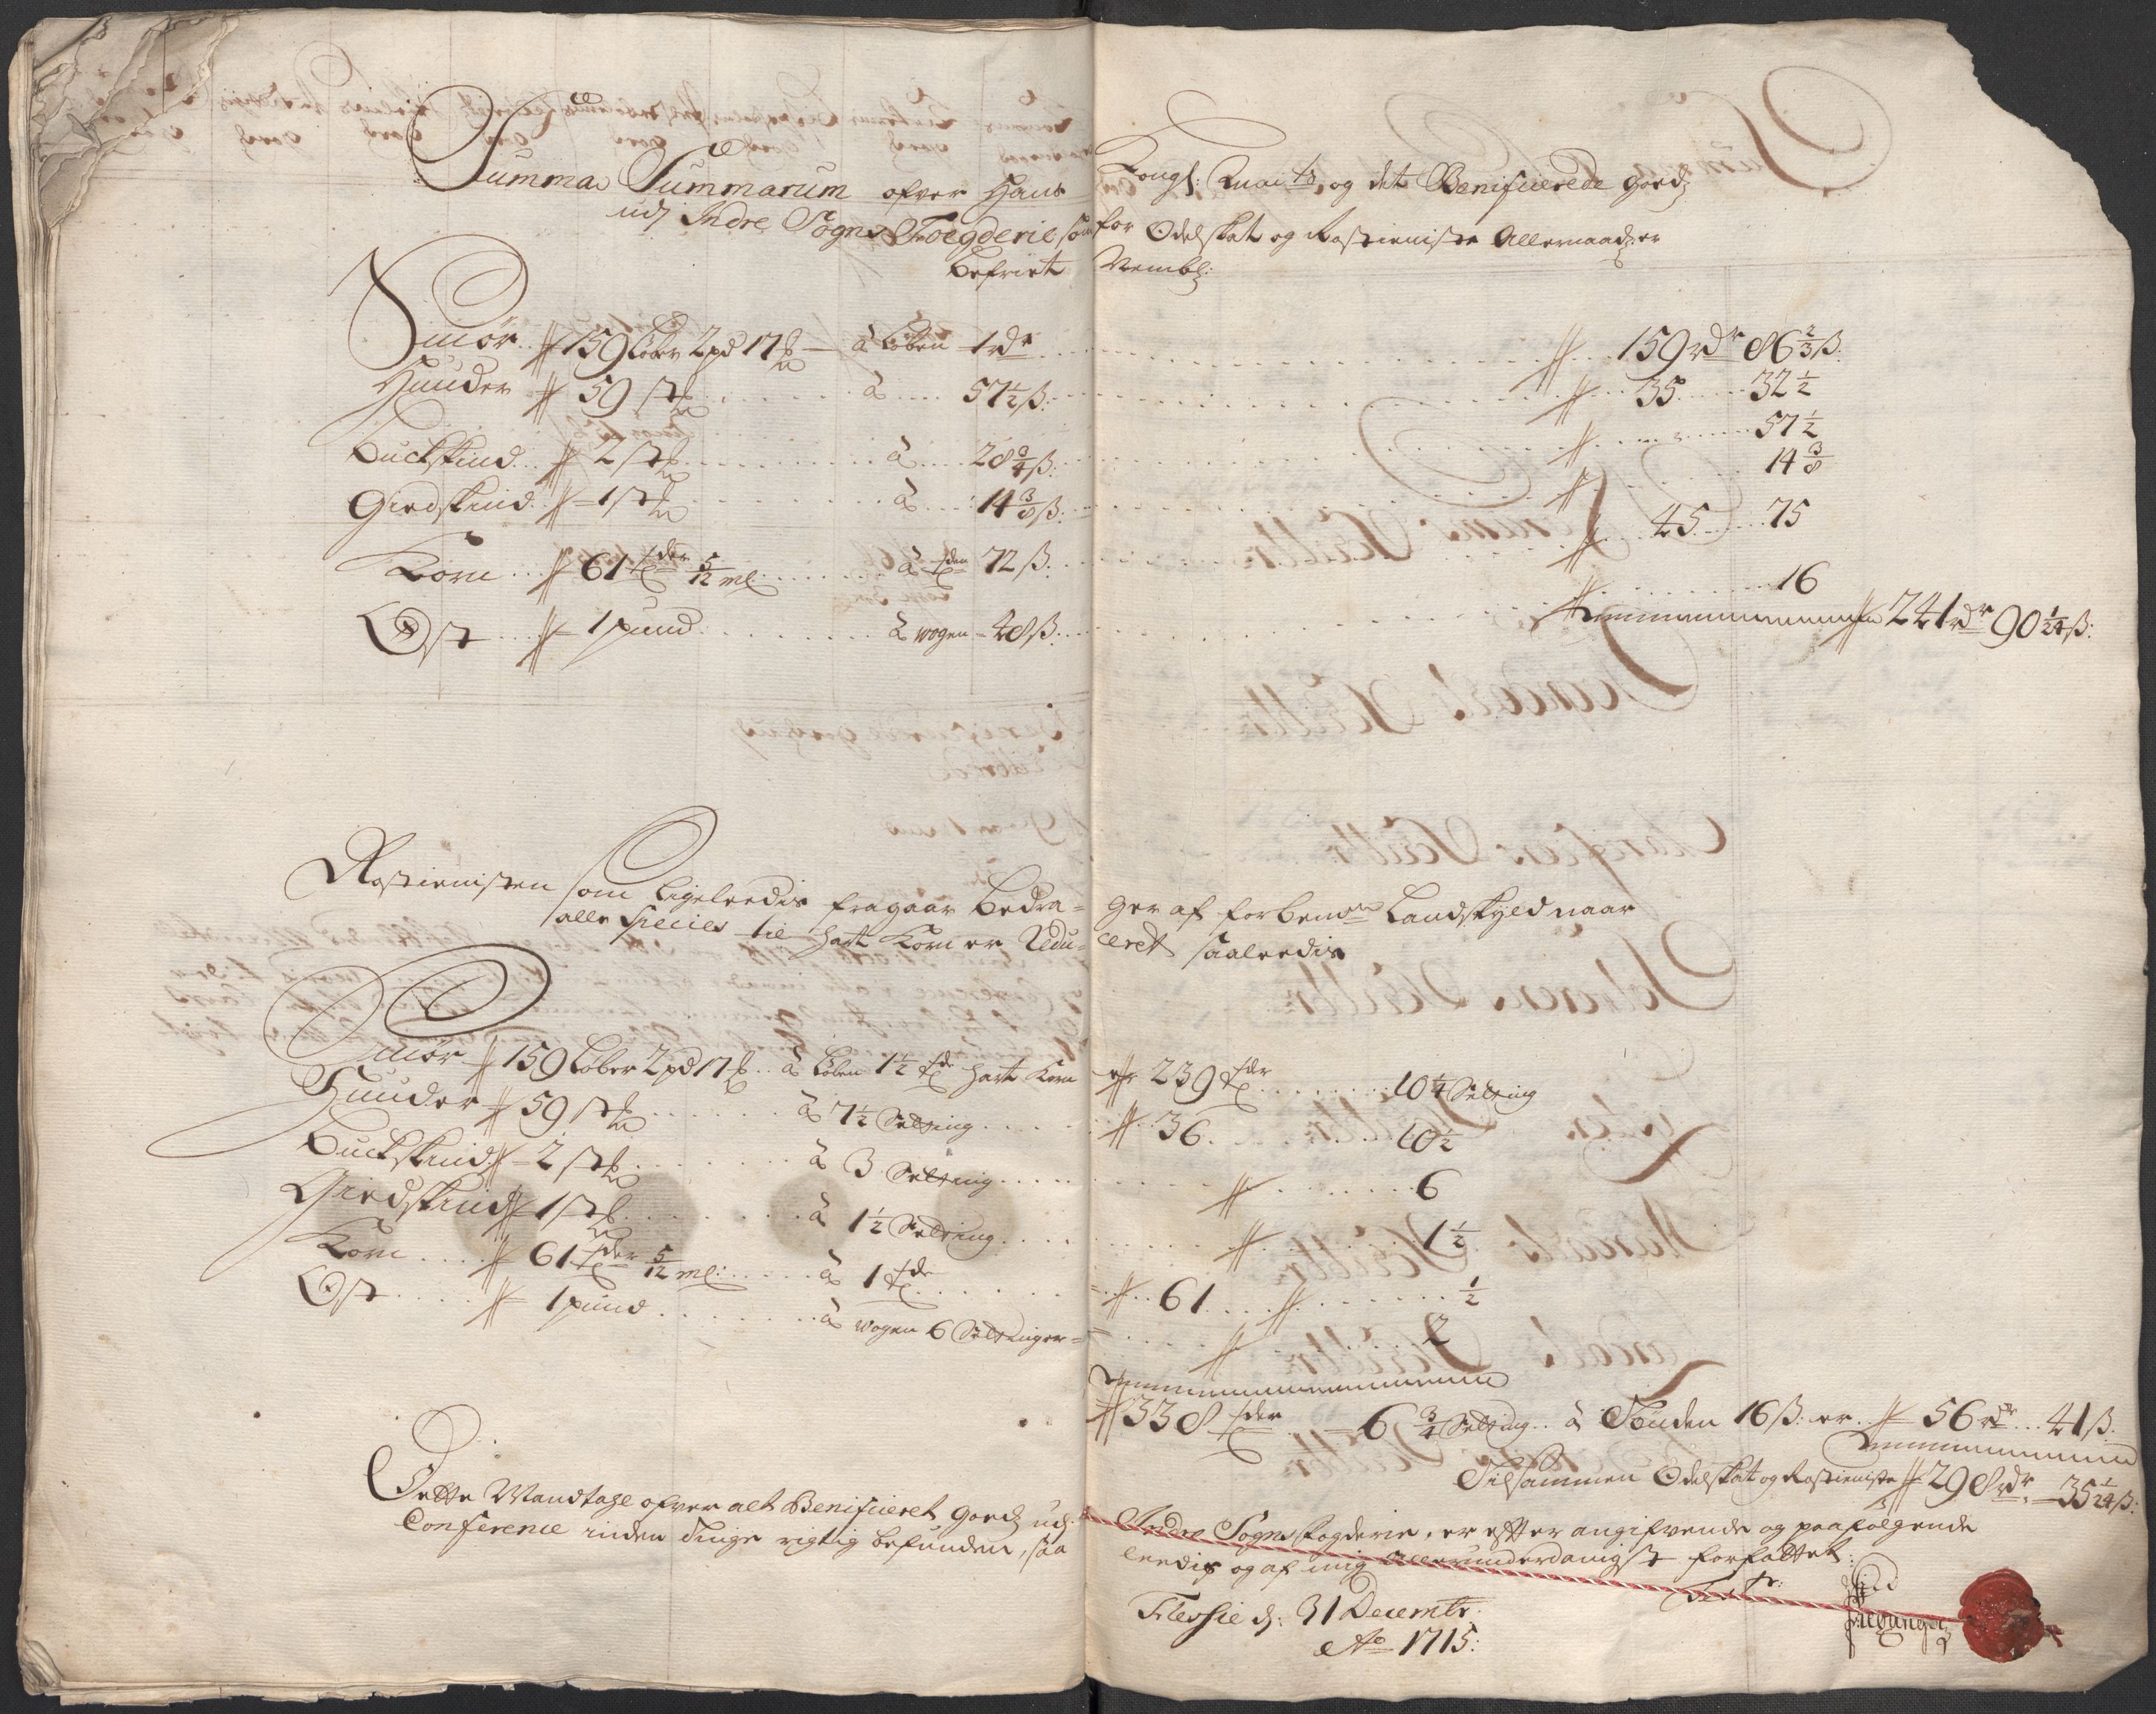 Summa Summarum ofver Hans Kongl: Maits, og det Benificierede goedz
udj Indre Sogns Foegderie som for Odelskat og Rostieniste Allernaadr: er
befriet Nembl:
Smør # 159 Løber 2 pd 17 # â Løben 1 rdr # 159 rdr 86 2/3 ß:
Huuder # 59 stk â 57 1/2 ß: # 35 32 1/2
Buckskind # 2 stk â 28 3/4 ß: # 57 1/2
Giedskind # 1 stk â 14 3/8 ß: # 14 3/8
Korn # 61 tder 5/12 ml â tden 72 ß: # 45 75
Ost # 1 pund â vogen 48 ß: # 16
# 241 rdr 90 1/24 ß:
Rostienisten som ligeleedis fragaar bedra= ger af forbente Landskyld naar
alle Species til hart Korn er Redu= ceret saaleedis
Smør # 159 Løber 2 pd 17 # â Løben 1 1/2 tde hart Korn er 239 tdr 10 1/4 Setting
Huuder # 59 stk â 7 1/2 Setting # 36 10 1/2
Buckskind # 2 stk â 3 Setting # 6
Giedskind # 1 stk â 1 1/2 Setting # 1 1/2
Korn # 61 tder 5/12 ml: â 1 tde # 61 # 1/2
Ost # 1 pund â vogen 6 Settinger # 2
# 338 tder 6 3/4 Setting â Tønden 16 ß: er # 56 rdr 41 ß:
Tilsammen Odelskat og Rostieniste # 298 rdr 35 1/24 ß:
Dette Mandtahl ofver alt Benificieret goedz udj Indre Sogns fogderie, er efter angifvende og paafølgende
Conference inden Tinge rigtig befunden, saa leedis og af mig allerunderdanigst forfattet:
Flessie d: 31 Decembr:
Ao 1715: